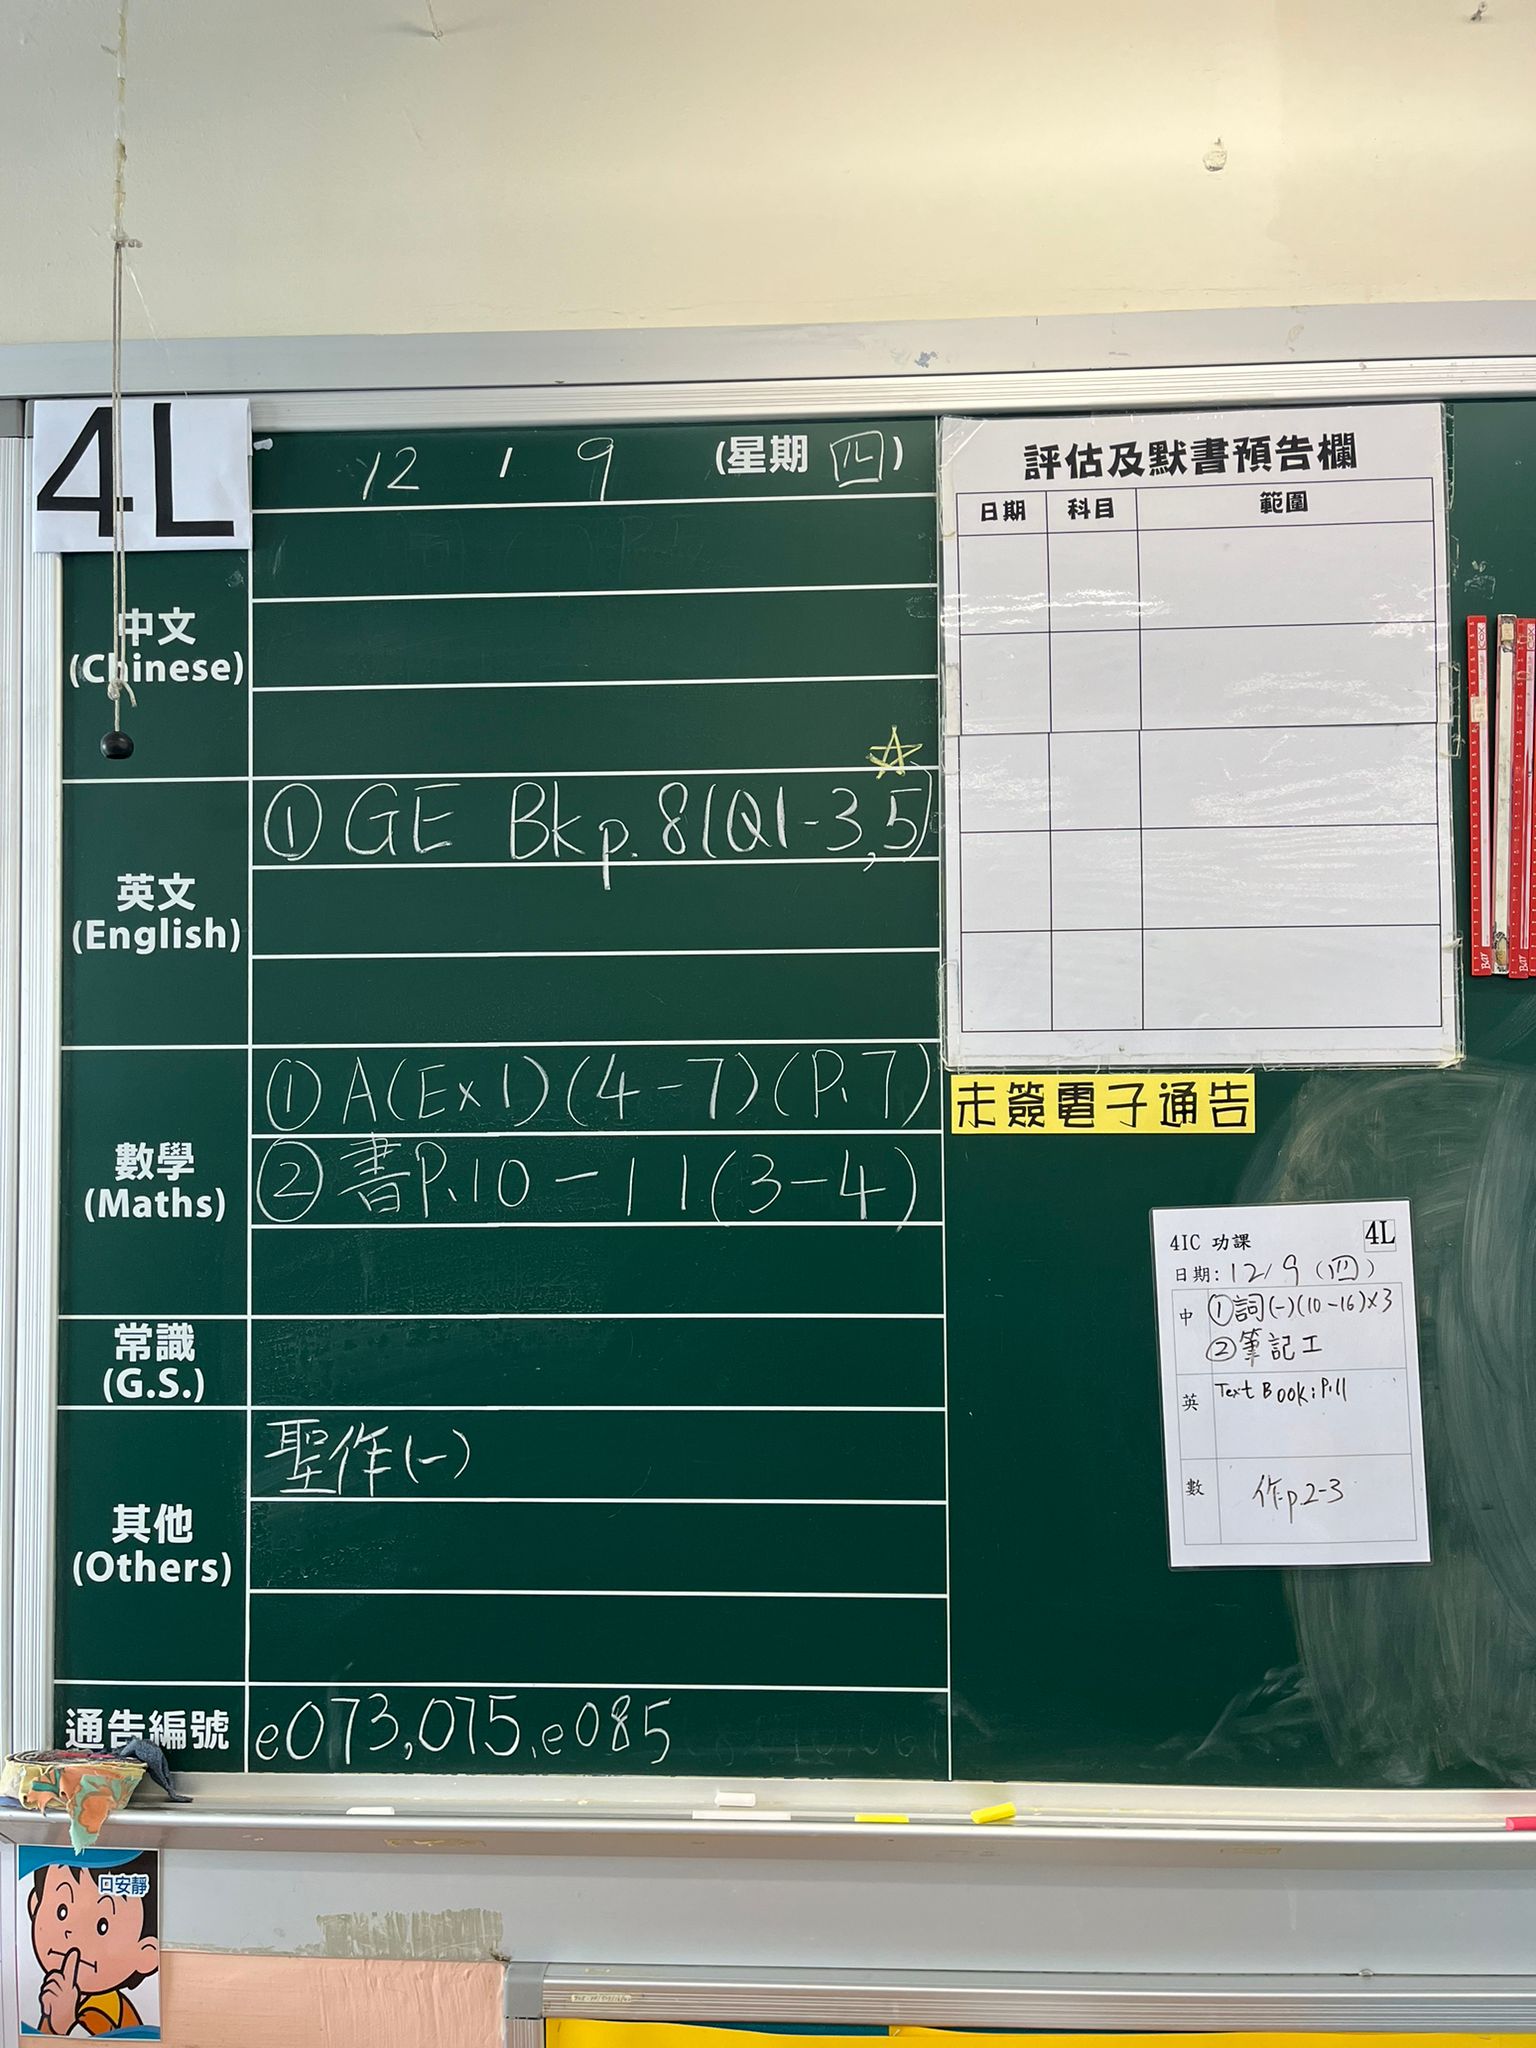 4L
12 / 9 (星期四)
中文
(Chinese)
英文
(English)
☆
① GE Bk p. 8 (Q1-3,5)
數學
(Maths)
① A(Ex1)(4-7)(P.7)
② 書P.10-11(3-4)
常識
(G.S.)
其他
(Others)
聖作(一)
通告編號
e073,075,e085
評估及默書預告欄
日期 科目 範圍
未簽電子通告
4IC 功課 4L
日期: 12/9 (四)
中 ①詞(一)(10-16)x3
②筆記工
英 Text Book: P.11
數 作p.2-3
口安靜